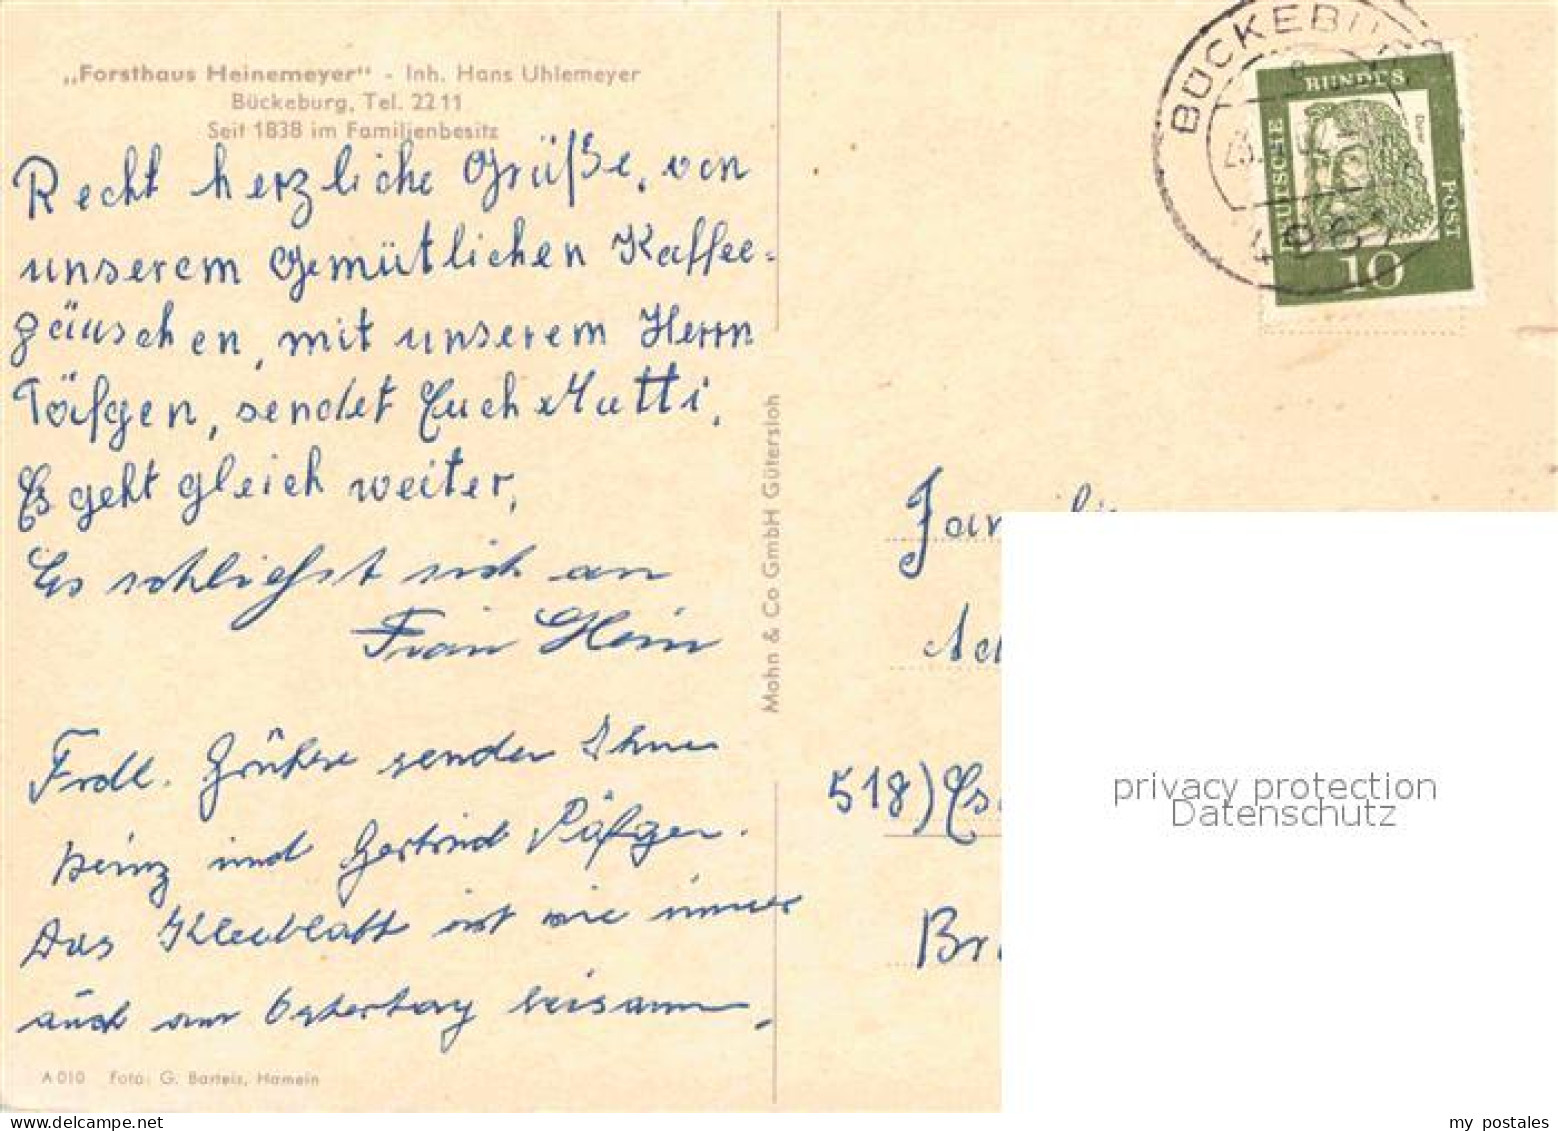 „Forsthaus Heinemeyer" - Inh. Hans Uhlemeyer
Bückeburg, Tel. 2211
Seit 1838 im Familienbesitz
Recht herzliche Grüße, von
unserem Gemütlichen Kaffee=
päuschen, mit unserem Herrn
sendet Euch Mutti.
Es geht gleich weiter,
Es schließt sich an
Frau Hein
Frdl. Grüße senden Ihnen
Heinz und Gertrud
Das Kleeblatt ist wie immer
auch am Ostertag beisamm.
A 010 Foto: G. Bartels, Hameln
Mohn & Co GmbH Gütersloh
BÜCKEBURG
DEUTSCHE BUNDES POST
Dürer
10
Fam
518) Es
Br
privacy protection
Datenschutz
my postales